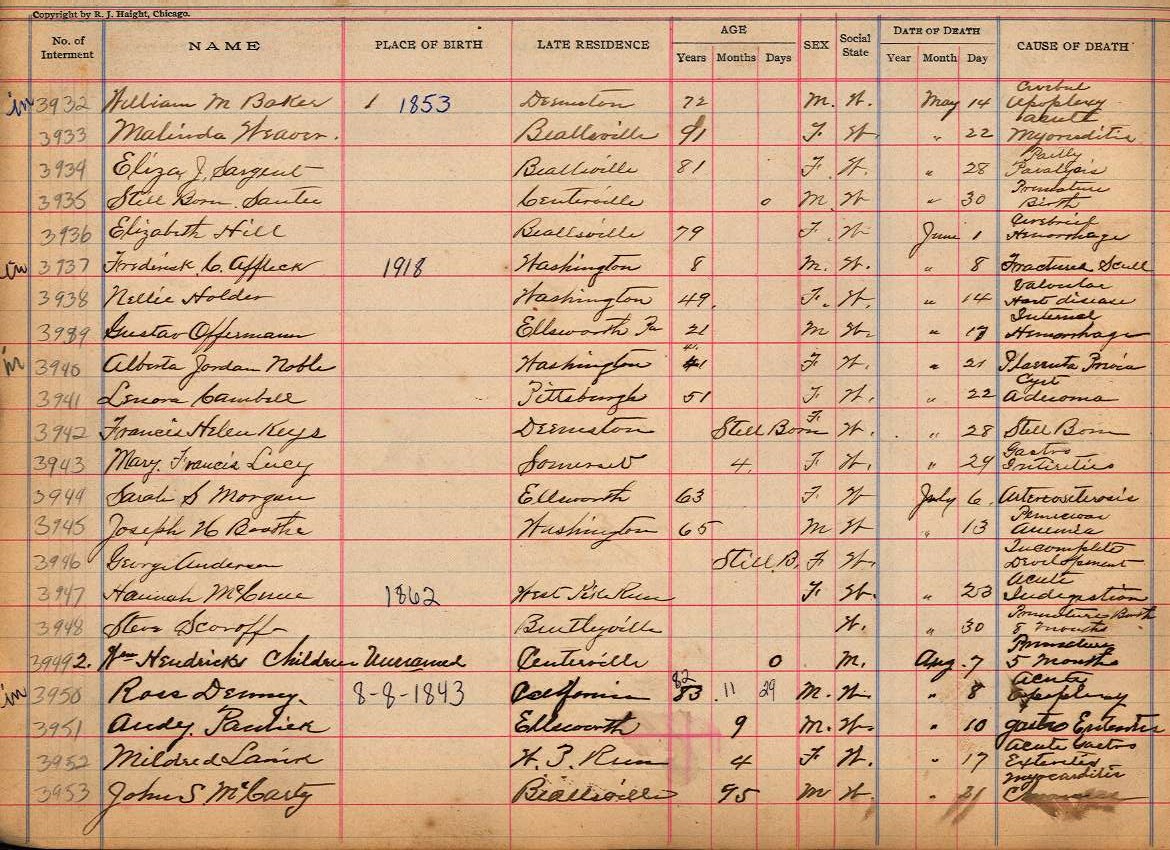 Copyright by R. J. Haight, Chicago.
No. of Interment NAME PLACE OF BIRTH LATE RESIDENCE AGE Years Months Days SEX Social State DATE OF DEATH Year Month Day CAUSE OF DEATH
in 3932 William M Baker 1 1853 Deemston 72 M. W. May 14 Apoplexy
3933 Malinda Weaver. Beallsville 91 F. W. " 22 Acute Myocarditis
3934 Eliza J. Sargent Beallsville 81 F. W. " 28 Paralysis
3935 Still Born Santee Centerville 0 M. W " 30 Premature Birth
3936 Elizabeth Hill Beallsville 79 F. W. June 1 Hemorrhage
in 3937 Fredirick. C. Affleck 1918 Washington 8 M. W. " 8 Fractured Scull
3938 Nellie Holder Washington 49. F. W. " 14 Valvular Hart disease
3939 Gustav Offermann Ellsworth Pa 21 M W. " 17 Internal Hemorrhage
in 3940 Alberta Jordan Noble Washington 41 F W. " 21 Placenta
3941 Lenora Cambell Pittsburgh 51 F W. " 22 Cyst Adenoma
3942 Francis Helen Keys Deemston Still Born F. W. " 28 Still Born
3943 Mary. Francis Lucy Somerset 4 F W. " 29 Gastro
3944 Sarah S Morgan Ellsworth 63 F. W July 6.
3945 Joseph H Boothe Washington 65 M W " 13 Anemia
3946 George Anderson Still B. F W. Incomplete Development
3947 Hannah McCune 1862 West Pike Run F. W. " 23 Acute Indegestion
3948 Steve Scoroff Bentleyville W. " 30 Premature Birth 8 months
3949 2. Wm Hendricks Children Unnamed Centerville 0 M. Aug. 7 Premature 5 months
in 3950 Ross Denney. 8-8-1843 California 82 83 11 29 M. W. " 8 Acute Apoplexy
3951 Andy. Ellsworth 9 M. W. " 10 gastro
3952 Mildred W. P. Run 4 F W. " 17 Acute Gastro
3953 John S. McCarty Beallsville 95 M W. " 21 myocarditis